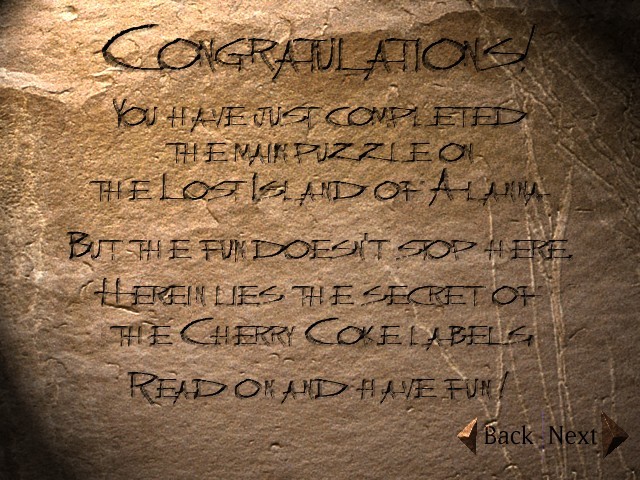 Congratulations!
You have just completed
the main puzzle on
the Lost Island of Alanna.
But the fun doesn't stop here.
Herein lies the secret of
the Cherry Coke labels.
Read on and have fun!
Back Next